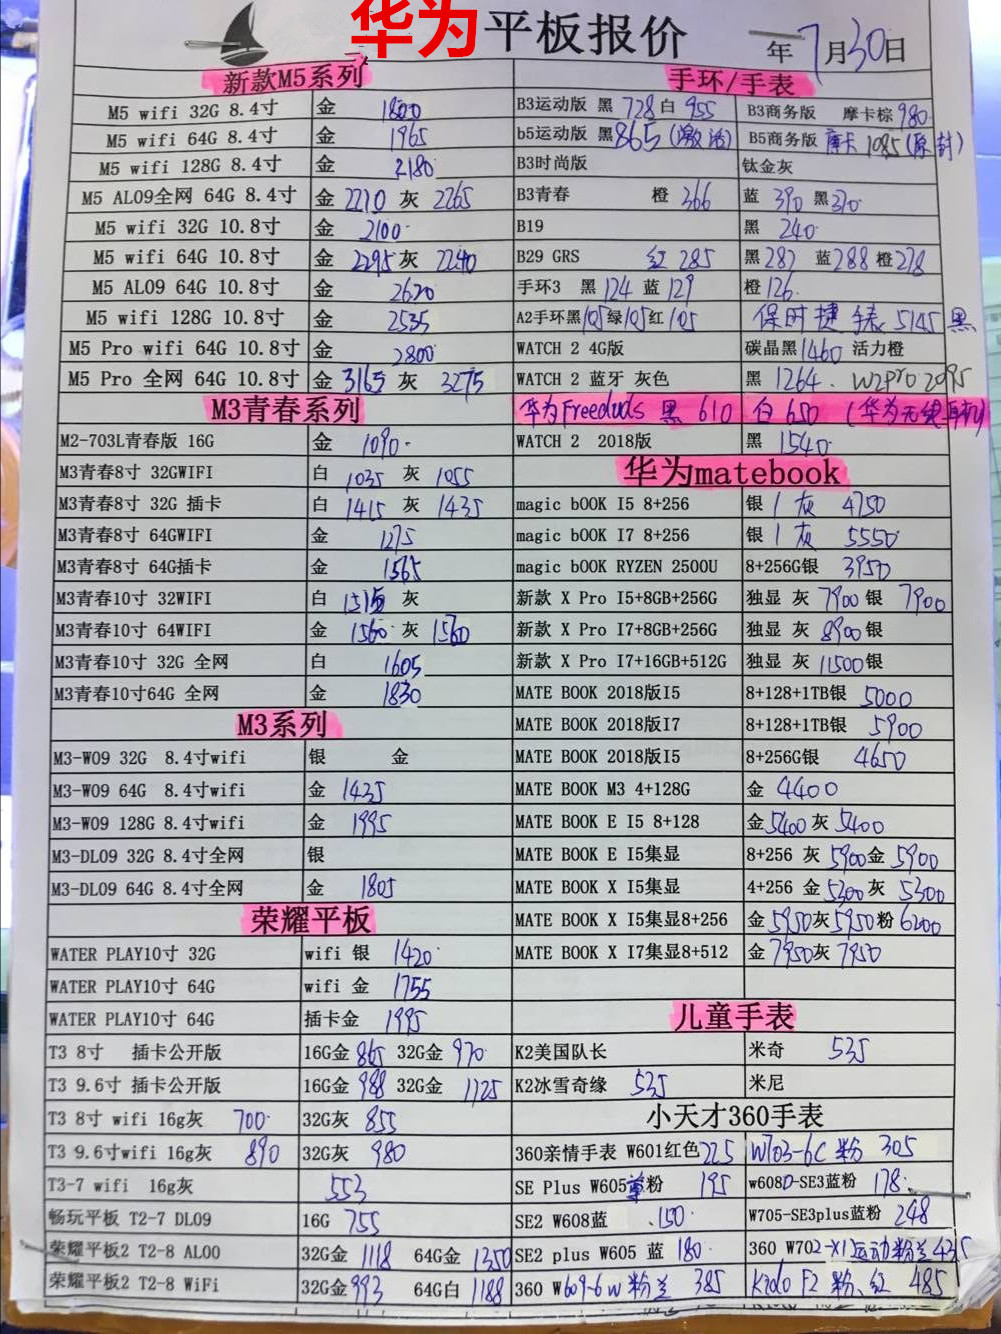 华为平板报价 年7月30日
新款M5系列
M5 wifi 32G 8.4寸 金 1800
M5 wifi 64G 8.4寸 金 1965
M5 wifi 128G 8.4寸 金 2180
M5 AL09全网 64G 8.4寸 金 2210 灰 2265
M5 wifi 32G 10.8寸 金 2100
M5 wifi 64G 10.8寸 金 2295 灰 2240
M5 AL09 64G 10.8寸 金 2620
M5 wifi 128G 10.8寸 金 2535
M5 Pro wifi 64G 10.8寸 金 2800
M5 Pro 全网 64G 10.8寸 金 3165 灰 3275
M3青春系列
M2-703L青春版 16G 金 1090
M3青春8寸 32GWIFI 白 1035 灰 1055
M3青春8寸 32G 插卡 白 1415 灰 1435
M3青春8寸 64GWIFI 金 1275
M3青春8寸 64G插卡 金 1565
M3青春10寸 32WIFI 白 1515 灰
M3青春10寸 64WIFI 金 1560 灰 1560
M3青春10寸 32G 全网 白 1605
M3青春10寸64G 全网 金 1830
M3系列
M3-W09 32G 8.4寸wifi 银 金
M3-W09 64G 8.4寸wifi 金 1435
M3-W09 128G 8.4寸wifi 金 1995
M3-DL09 32G 8.4寸全网 银
M3-DL09 64G 8.4寸全网 金 1805
荣耀平板
WATER PLAY10寸 32G wifi 银 1420
WATER PLAY10寸 64G wifi 金 1755
WATER PLAY10寸 64G 插卡金 1995
T3 8寸 插卡公开版 16G金 865 32G金 970
T3 9.6寸 插卡公开版 16G金 988 32G金 1125
T3 8寸 wifi 16g灰 700 32G灰 855
T3 9.6寸wifi 16g灰 890 32G灰 980
T3-7 wifi 16g灰 553
畅玩平板 T2-7 DL09 16G 755
荣耀平板2 T2-8 AL00 32G金 1118 64G金 1350
荣耀平板2 T2-8 WiFi 32G金 993 64G白 1188
手环/手表
B3运动版 黑 728 白 955 B3商务版 摩卡棕 980
b5运动版 黑 865(激活) B5商务版 摩卡 1085(原封)
B3时尚版 钛金灰
B3青春 橙 366 蓝 390 黑 370
B19 黑 240
B29 GRS 红 285 黑 287 蓝 288 橙 278
手环3 黑 124 蓝 129 橙 126
A2手环黑 105 绿 105 红 105 保时捷 手表 5145 黑
WATCH 2 4G版 碳晶黑 1460 活力橙
WATCH 2 蓝牙 灰色 黑 1264. W2pro 2095
华为Freeduds 黑 610 白 650 (华为无线耳机)
WATCH 2 2018版 黑 1540
华为matebook
magic bOOK I5 8+256 银 1 灰 4750
magic bOOK I7 8+256 银 1 灰 5550
magic bOOK RYZEN 2500U 8+256G银 3950
新款 X Pro I5+8GB+256G 独显 灰 7900 银 7900
新款 X Pro I7+8GB+256G 独显 灰 8900 银
新款 X Pro I7+16GB+512G 独显 灰 11500 银
MATE BOOK 2018版I5 8+128+1TB银 5000
MATE BOOK 2018版I7 8+128+1TB银 5900
MATE BOOK 2018版I5 8+256G银 4650
MATE BOOK M3 4+128G 金 4400
MATE BOOK E I5 8+128 金 5400 灰 5400
MATE BOOK E I5集显 8+256 灰 5900 金 5900
MATE BOOK X I5集显 4+256 金 5300 灰 5300
MATE BOOK X I5集显8+256 金 5950 灰 5950 粉 6200
MATE BOOK X I7集显8+512 金 7950 灰 7950
儿童手表
K2美国队长 米奇 535
K2冰雪奇缘 535 米尼
小天才360手表
360亲情手表 W601红色 225 W703-6C 粉 305
SE Plus W605 粉 195 w608D-SE3蓝粉 178
SE2 W608蓝 150 W705-SE3plus蓝粉 248
SE2 plus W605 蓝 180 360 W702-X1运动粉兰 435
360 W609-6W 粉兰 385 Kido F2 粉、红 485